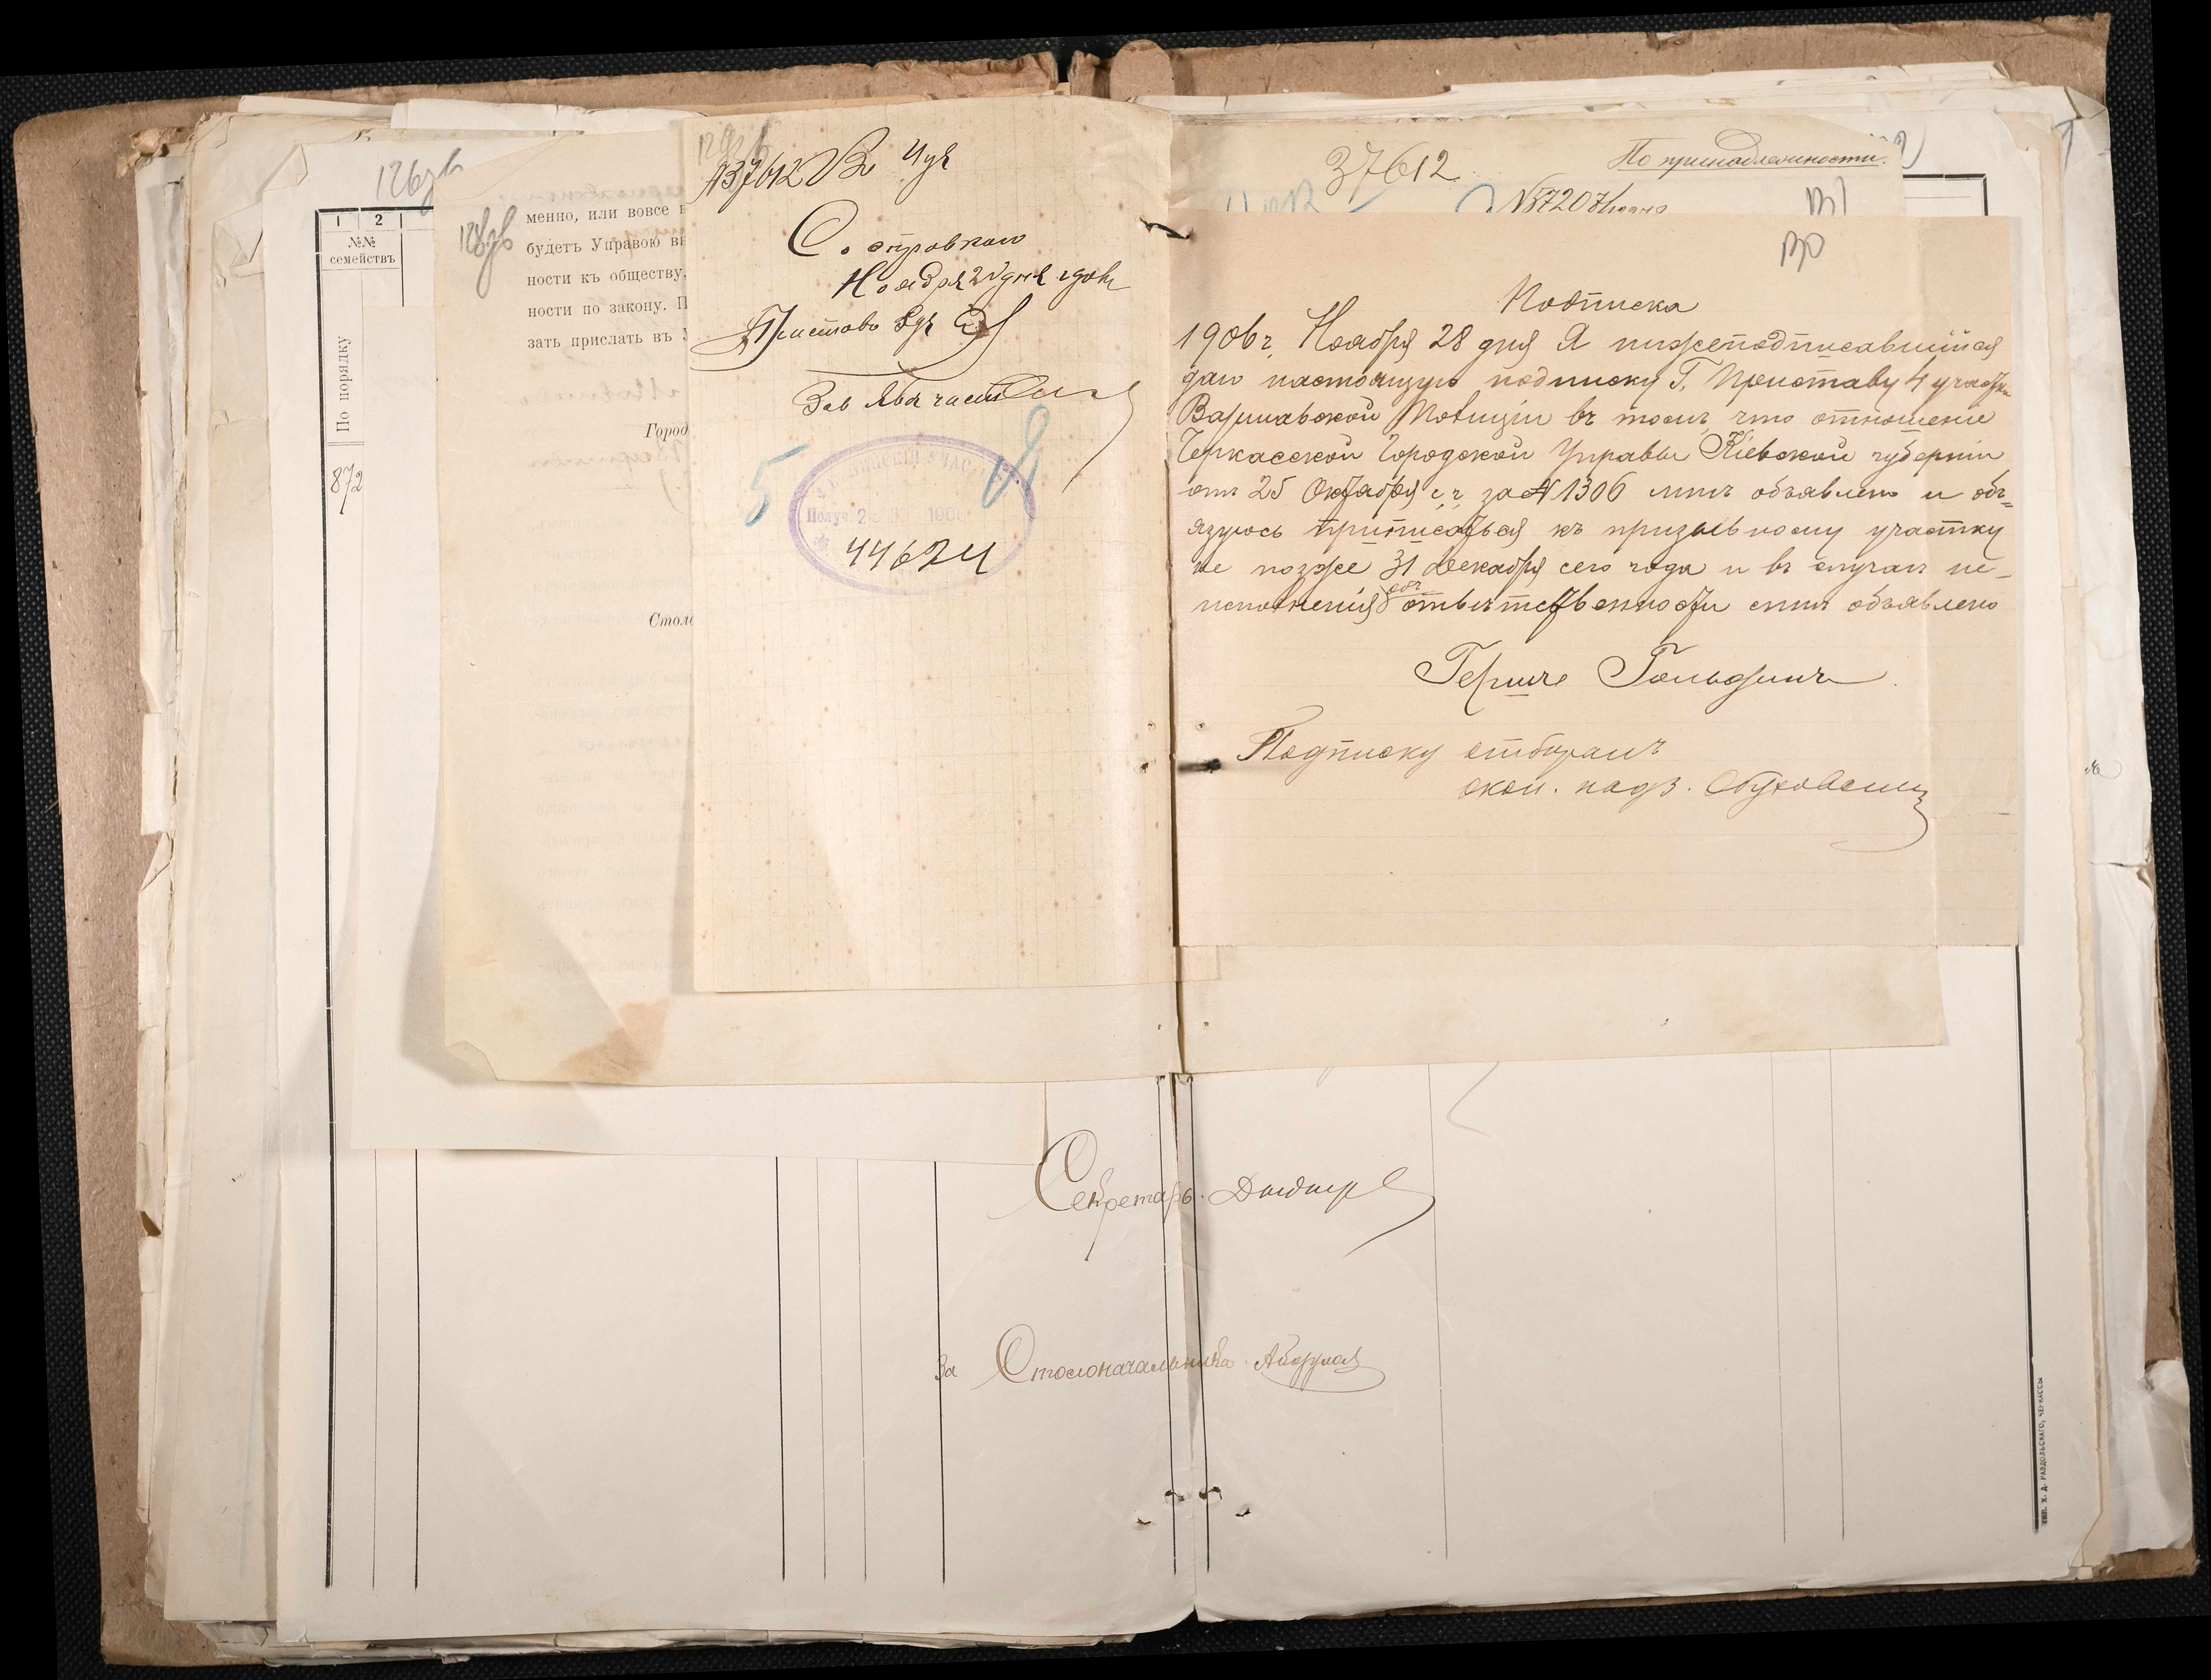 126 зв
1 2
№№
семействъ
По порядку
872
128 зв
менно, или вовсе н
будетъ Управою вы
ности къ обществу,
ности по закону. П
зать прислать въ У
Город
Столо
№37612 Въ 4 уч
Со справкою
Ноября 21 дня 190
Приставъ 8 уч
5
Получ. 2 190
44624
37612
По принадлежности.
№57207
131
130
Подписка
1906 г. Ноября 28 дня Я нижеподписавшійся
даю настоящую подписку Г. Приставу 4 участка
Варшавской Полиціи въ томъ, что отношеніе
Черкасской Городской Управы Кіевской губерніи
отъ 25 Октября с. г. за № 1306 мнѣ объявлено и обя=
язуюсь приписаться къ призывному участку
не позже 31 Декабря сего года и въ случаѣ не-
исполненія объ отвѣтственности мнѣ объявлено
Герше Гольдинъ
Подписку отбиралъ
окол. надз.
Секретарь
За Столоначальника
ТИП. Х. Д. РАЗДОЛЬСКАГО, ЧЕРКАССЫ